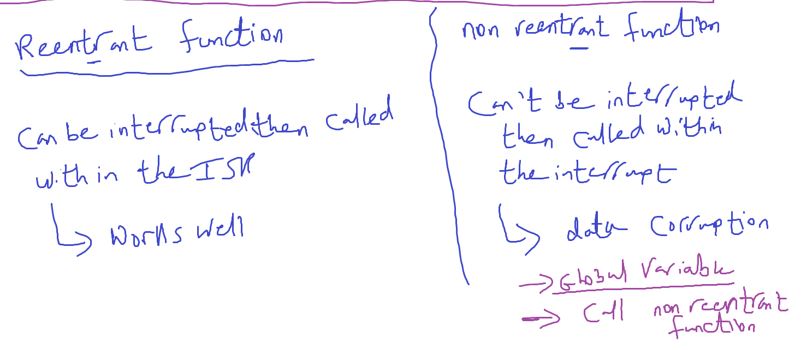 Reentrant function
Can be interrupted then called
within the ISR
Works well
non reentrant function
Can't be interrupted
then called within
the interrupt
data corruption
Global Variable
Call non reentrant
function